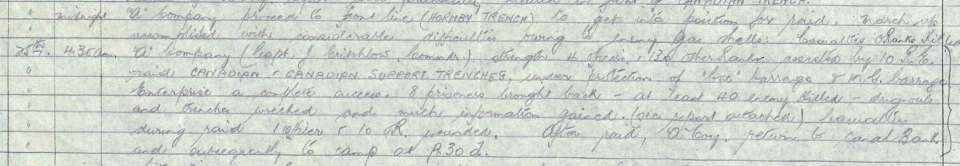 CANADIAN TRENCH.
" midnight 'A' Company proceed to front line (HORNBY TRENCH) to get into position for raid. March up
accomplished with considerable difficulties owing to enemy Gas shells. Casualties Ranks killed
25th. 4.35am. 'A' Company (Capt J Crichlow, Commdr) strength 4 officers, 136 other Ranks assisted by 10 R.E.
" raid CANADIAN & CANADIAN SUPPORT TRENCHES, under protection of 'box' barrage & M.G. barrage
" Enterprise a complete success. 8 prisoners brought back - at least 40 enemy killed - dug-outs
" and trenches wrecked and much information gained. (see report attached) Casualties
" during raid 1 officer & 10 O.R. wounded. After raid, 'A' Coy. return to Canal Bank
" and subsequently to camp at P.30 d.